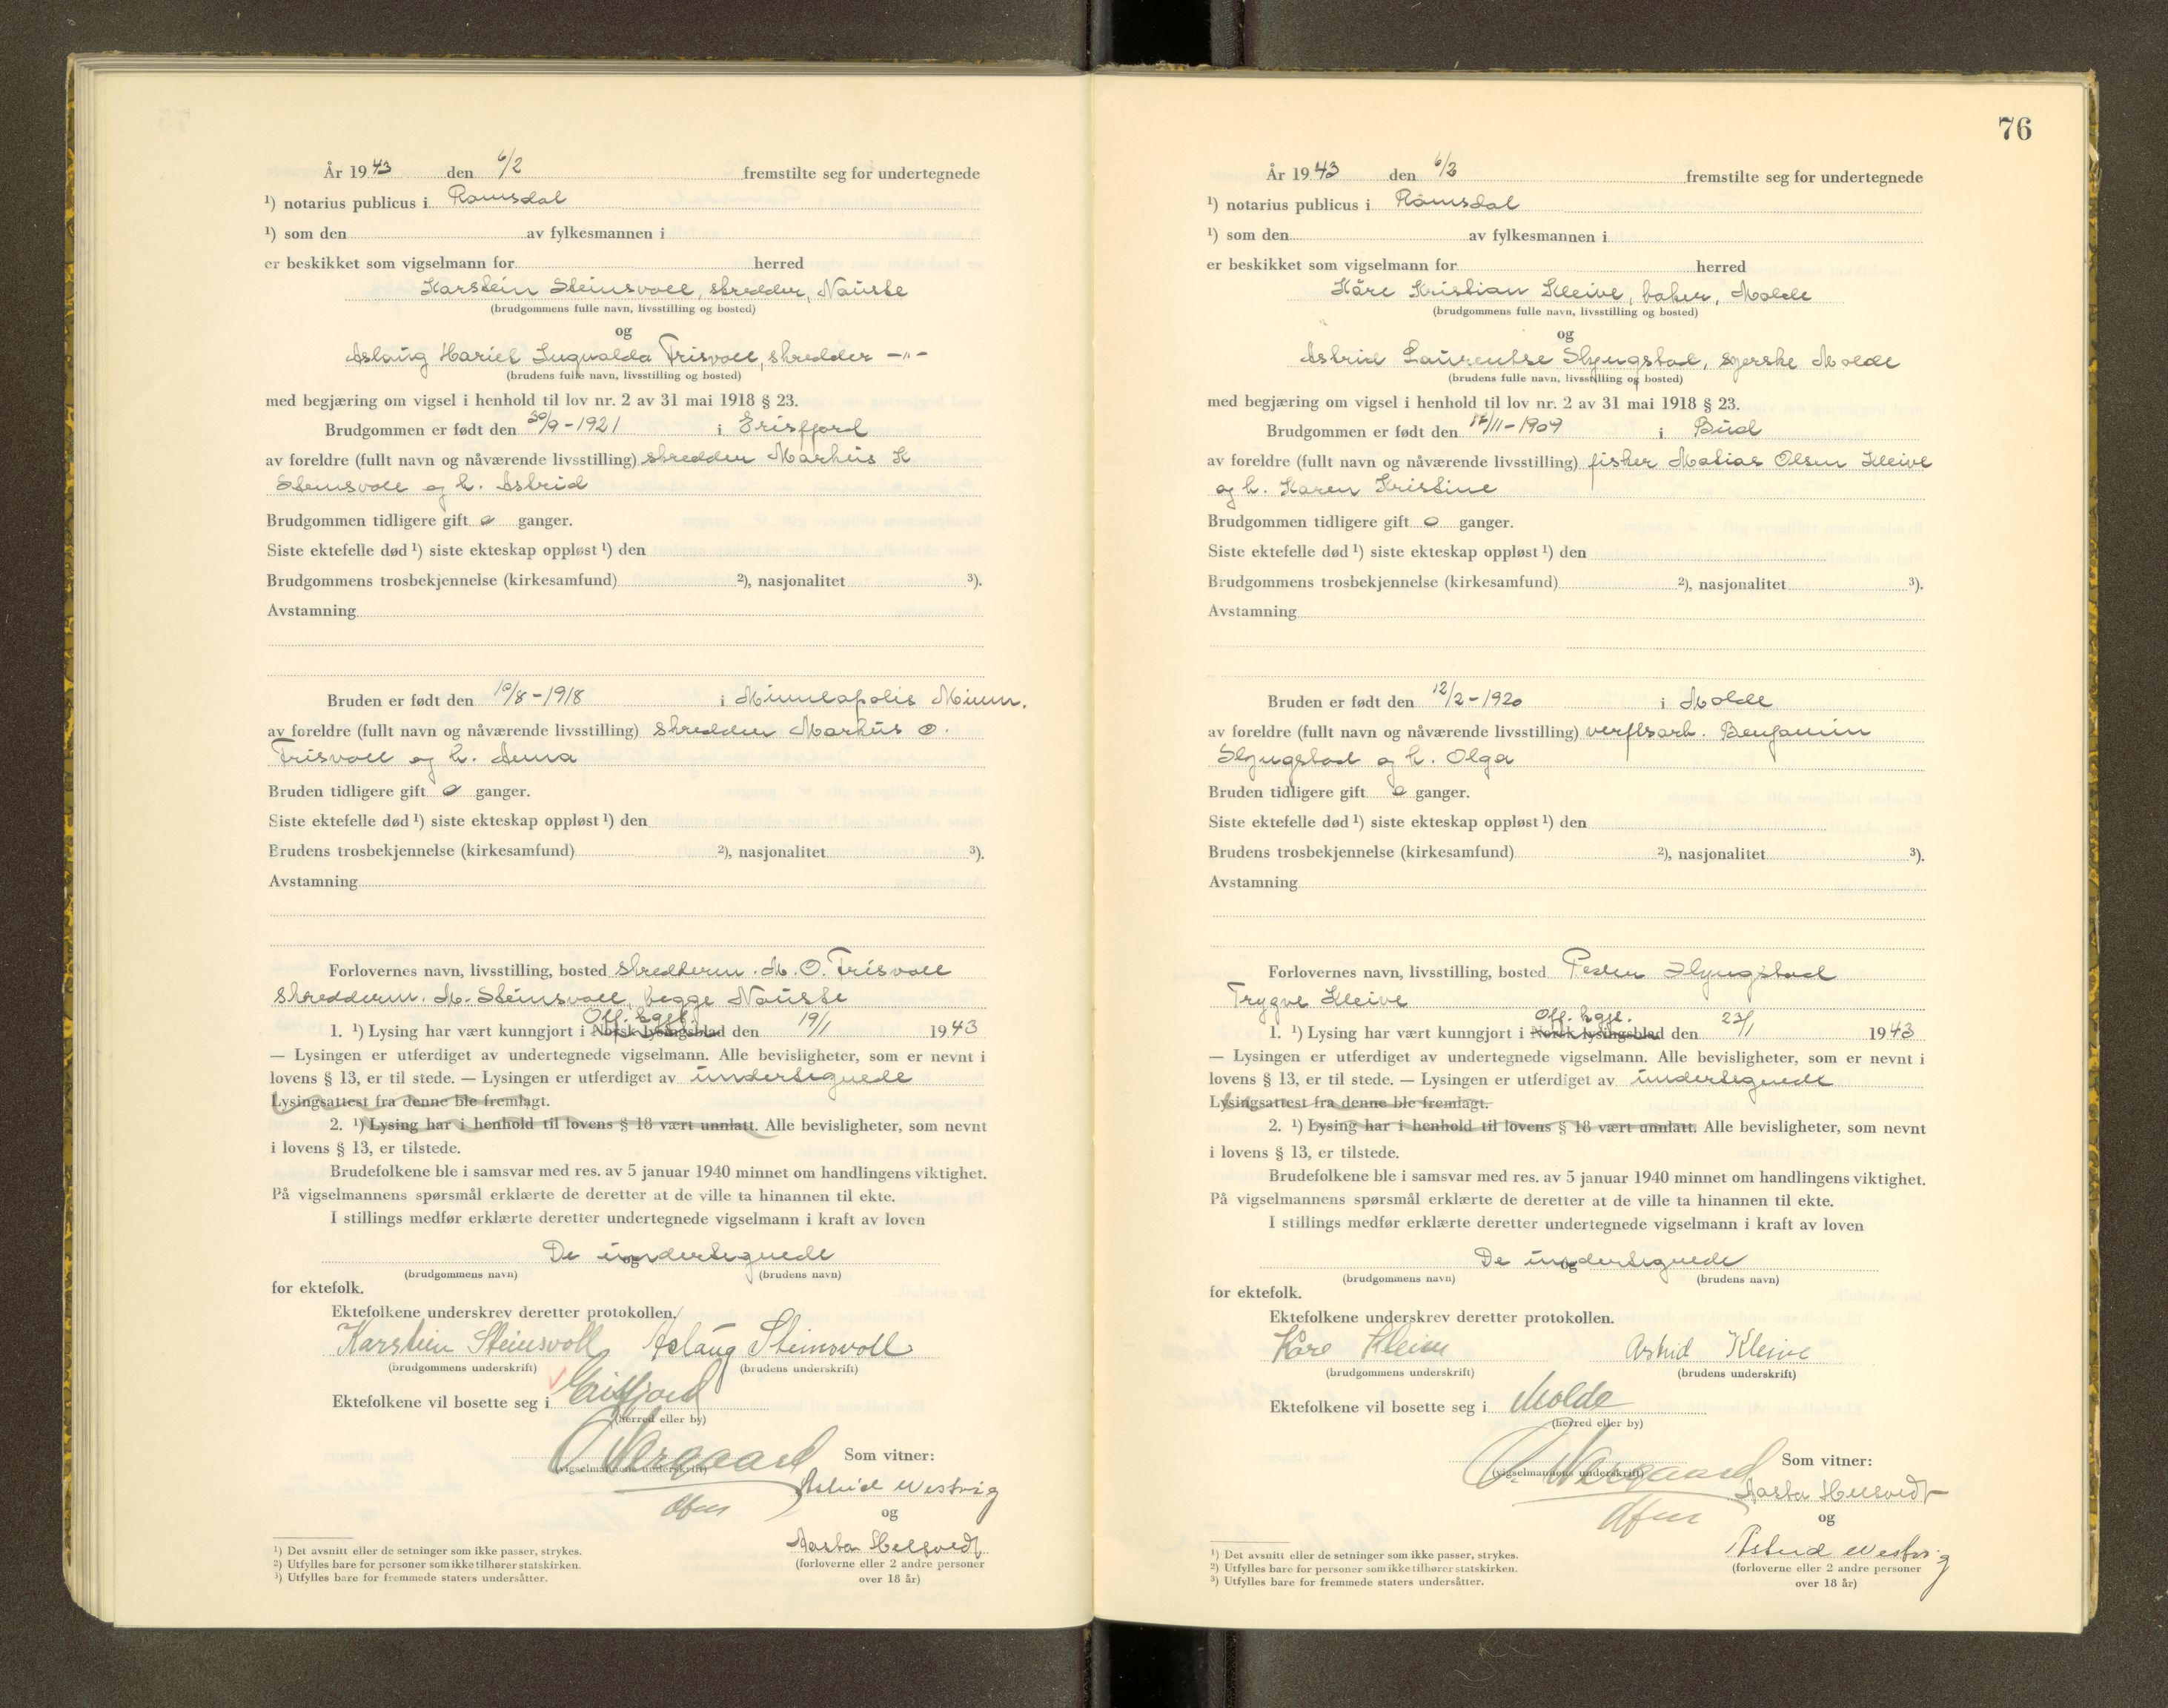 År 1943 den 6/2 fremstilte seg for undertegnede
¹) notarius publicus i Romsdal
¹) som den av fylkesmannen i
er beskikket som vigselmann for herred
Karstein Steinsvoll, skredder, Nauste
(brudgommens fulle navn, livsstilling og bosted)
og
Aslaug Hariet Ingvalda Frisvoll, skredder -"-
(brudens fulle navn, livsstilling og bosted)
med begjæring om vigsel i henhold til lov nr. 2 av 31 mai 1918 § 23.
Brudgommen er født den 30/9-1921 i Erisfjord
av foreldre (fullt navn og nåværende livsstilling) skredder Markus K
Steinsvoll og h. Astrid
Brudgommen tidligere gift 0 ganger.
Siste ektefelle død ¹) siste ekteskap oppløst ¹) den
Brudgommens trosbekjennelse (kirkesamfund) ²), nasjonalitet ³).
Avstamning
Bruden er født den 10/8-1918 i Minneapolis Minn.
av foreldre (fullt navn og nåværende livsstilling) skredder Markus O.
Frisvoll og h. Anna
Bruden tidligere gift 0 ganger.
Siste ektefelle død ¹) siste ekteskap oppløst ¹) den
Brudens trosbekjennelse (kirkesamfund) ²), nasjonalitet ³).
Avstamning
Forlovernes navn, livsstilling, bosted skredderm. M. O. Frisvoll
skredderm. M. Steinsvoll, begge Nauste
Off. kgjl.
1. ¹) Lysing har vært kunngjort i Norsk lysingsblad den 19/1 1943
— Lysingen er utferdiget av undertegnede vigselmann. Alle bevisligheter, som er nevnt i
lovens § 13, er til stede. — Lysingen er utferdiget av undertegnede
Lysingsattest fra denne ble fremlagt.
2. ¹) Lysing har i henhold til lovens § 18 vært unnlatt. Alle bevisligheter, som nevnt
i lovens § 13, er tilstede.
Brudefolkene ble i samsvar med res. av 5 januar 1940 minnet om handlingens viktighet.
På vigselmannens spørsmål erklærte de deretter at de ville ta hinannen til ekte.
I stillings medfør erklærte deretter undertegnede vigselmann i kraft av loven
De undertegnede
og
(brudgommens navn) (brudens navn)
for ektefolk.
Ektefolkene underskrev deretter protokollen.
Karstein Steinsvoll Aslaug Steinsvoll
(brudgommens underskrift) (brudens underskrift)
Ektefolkene vil bosette seg i Erisfjord
(herred eller by)
Som vitner:
(vigselmannens underskrift)
Astrid Westvig
og
Aasta Helsvedt
(forloverne eller 2 andre personer
over 18 år)
¹) Det avsnitt eller de setninger som ikke passer, strykes.
²) Utfylles bare for personer som ikke tilhører statskirken.
³) Utfylles bare for fremmede staters undersåtter.
76
År 1943 den 6/2 fremstilte seg for undertegnede
¹) notarius publicus i Romsdal
¹) som den av fylkesmannen i
er beskikket som vigselmann for herred
Kåre Kristian Kleive, baker, Molde
(brudgommens fulle navn, livsstilling og bosted)
og
Astrid Laurentse Slyngstad, syerske Molde
(brudens fulle navn, livsstilling og bosted)
med begjæring om vigsel i henhold til lov nr. 2 av 31 mai 1918 § 23.
Brudgommen er født den /11-1909 i Bud
av foreldre (fullt navn og nåværende livsstilling) fisker Matias Olsen Kleive
og h. Karen Kristine
Brudgommen tidligere gift 0 ganger.
Siste ektefelle død ¹) siste ekteskap oppløst ¹) den
Brudgommens trosbekjennelse (kirkesamfund) ²), nasjonalitet ³).
Avstamning
Bruden er født den 12/2-1920 i Molde
av foreldre (fullt navn og nåværende livsstilling) verftsarb. Benjamin
Slyngstad og h. Olga
Bruden tidligere gift 0 ganger.
Siste ektefelle død ¹) siste ekteskap oppløst ¹) den
Brudens trosbekjennelse (kirkesamfund) ²), nasjonalitet ³).
Avstamning
Forlovernes navn, livsstilling, bosted Peder Slyngstad
Trygve Kleive
Off. kgjl.
1. ¹) Lysing har vært kunngjort i Norsk lysingsblad den 23/1 1943
— Lysingen er utferdiget av undertegnede vigselmann. Alle bevisligheter, som er nevnt i
lovens § 13, er til stede. — Lysingen er utferdiget av undertegnede
Lysingsattest fra denne ble fremlagt.
2. ¹) Lysing har i henhold til lovens § 18 vært unnlatt. Alle bevisligheter, som nevnt
i lovens § 13, er tilstede.
Brudefolkene ble i samsvar med res. av 5 januar 1940 minnet om handlingens viktighet.
På vigselmannens spørsmål erklærte de deretter at de ville ta hinannen til ekte.
I stillings medfør erklærte deretter undertegnede vigselmann i kraft av loven
De undertegnede
og
(brudgommens navn) (brudens navn)
for ektefolk.
Ektefolkene underskrev deretter protokollen.
Kåre Kleive Astrid Kleive
(brudgommens underskrift) (brudens underskrift)
Ektefolkene vil bosette seg i Molde
(herred eller by)
Som vitner:
(vigselmannens underskrift)
Aasta Helsvedt
og
Astrid Westvig
(forloverne eller 2 andre personer
over 18 år)
¹) Det avsnitt eller de setninger som ikke passer, strykes.
²) Utfylles bare for personer som ikke tilhører statskirken.
³) Utfylles bare for fremmede staters undersåtter.